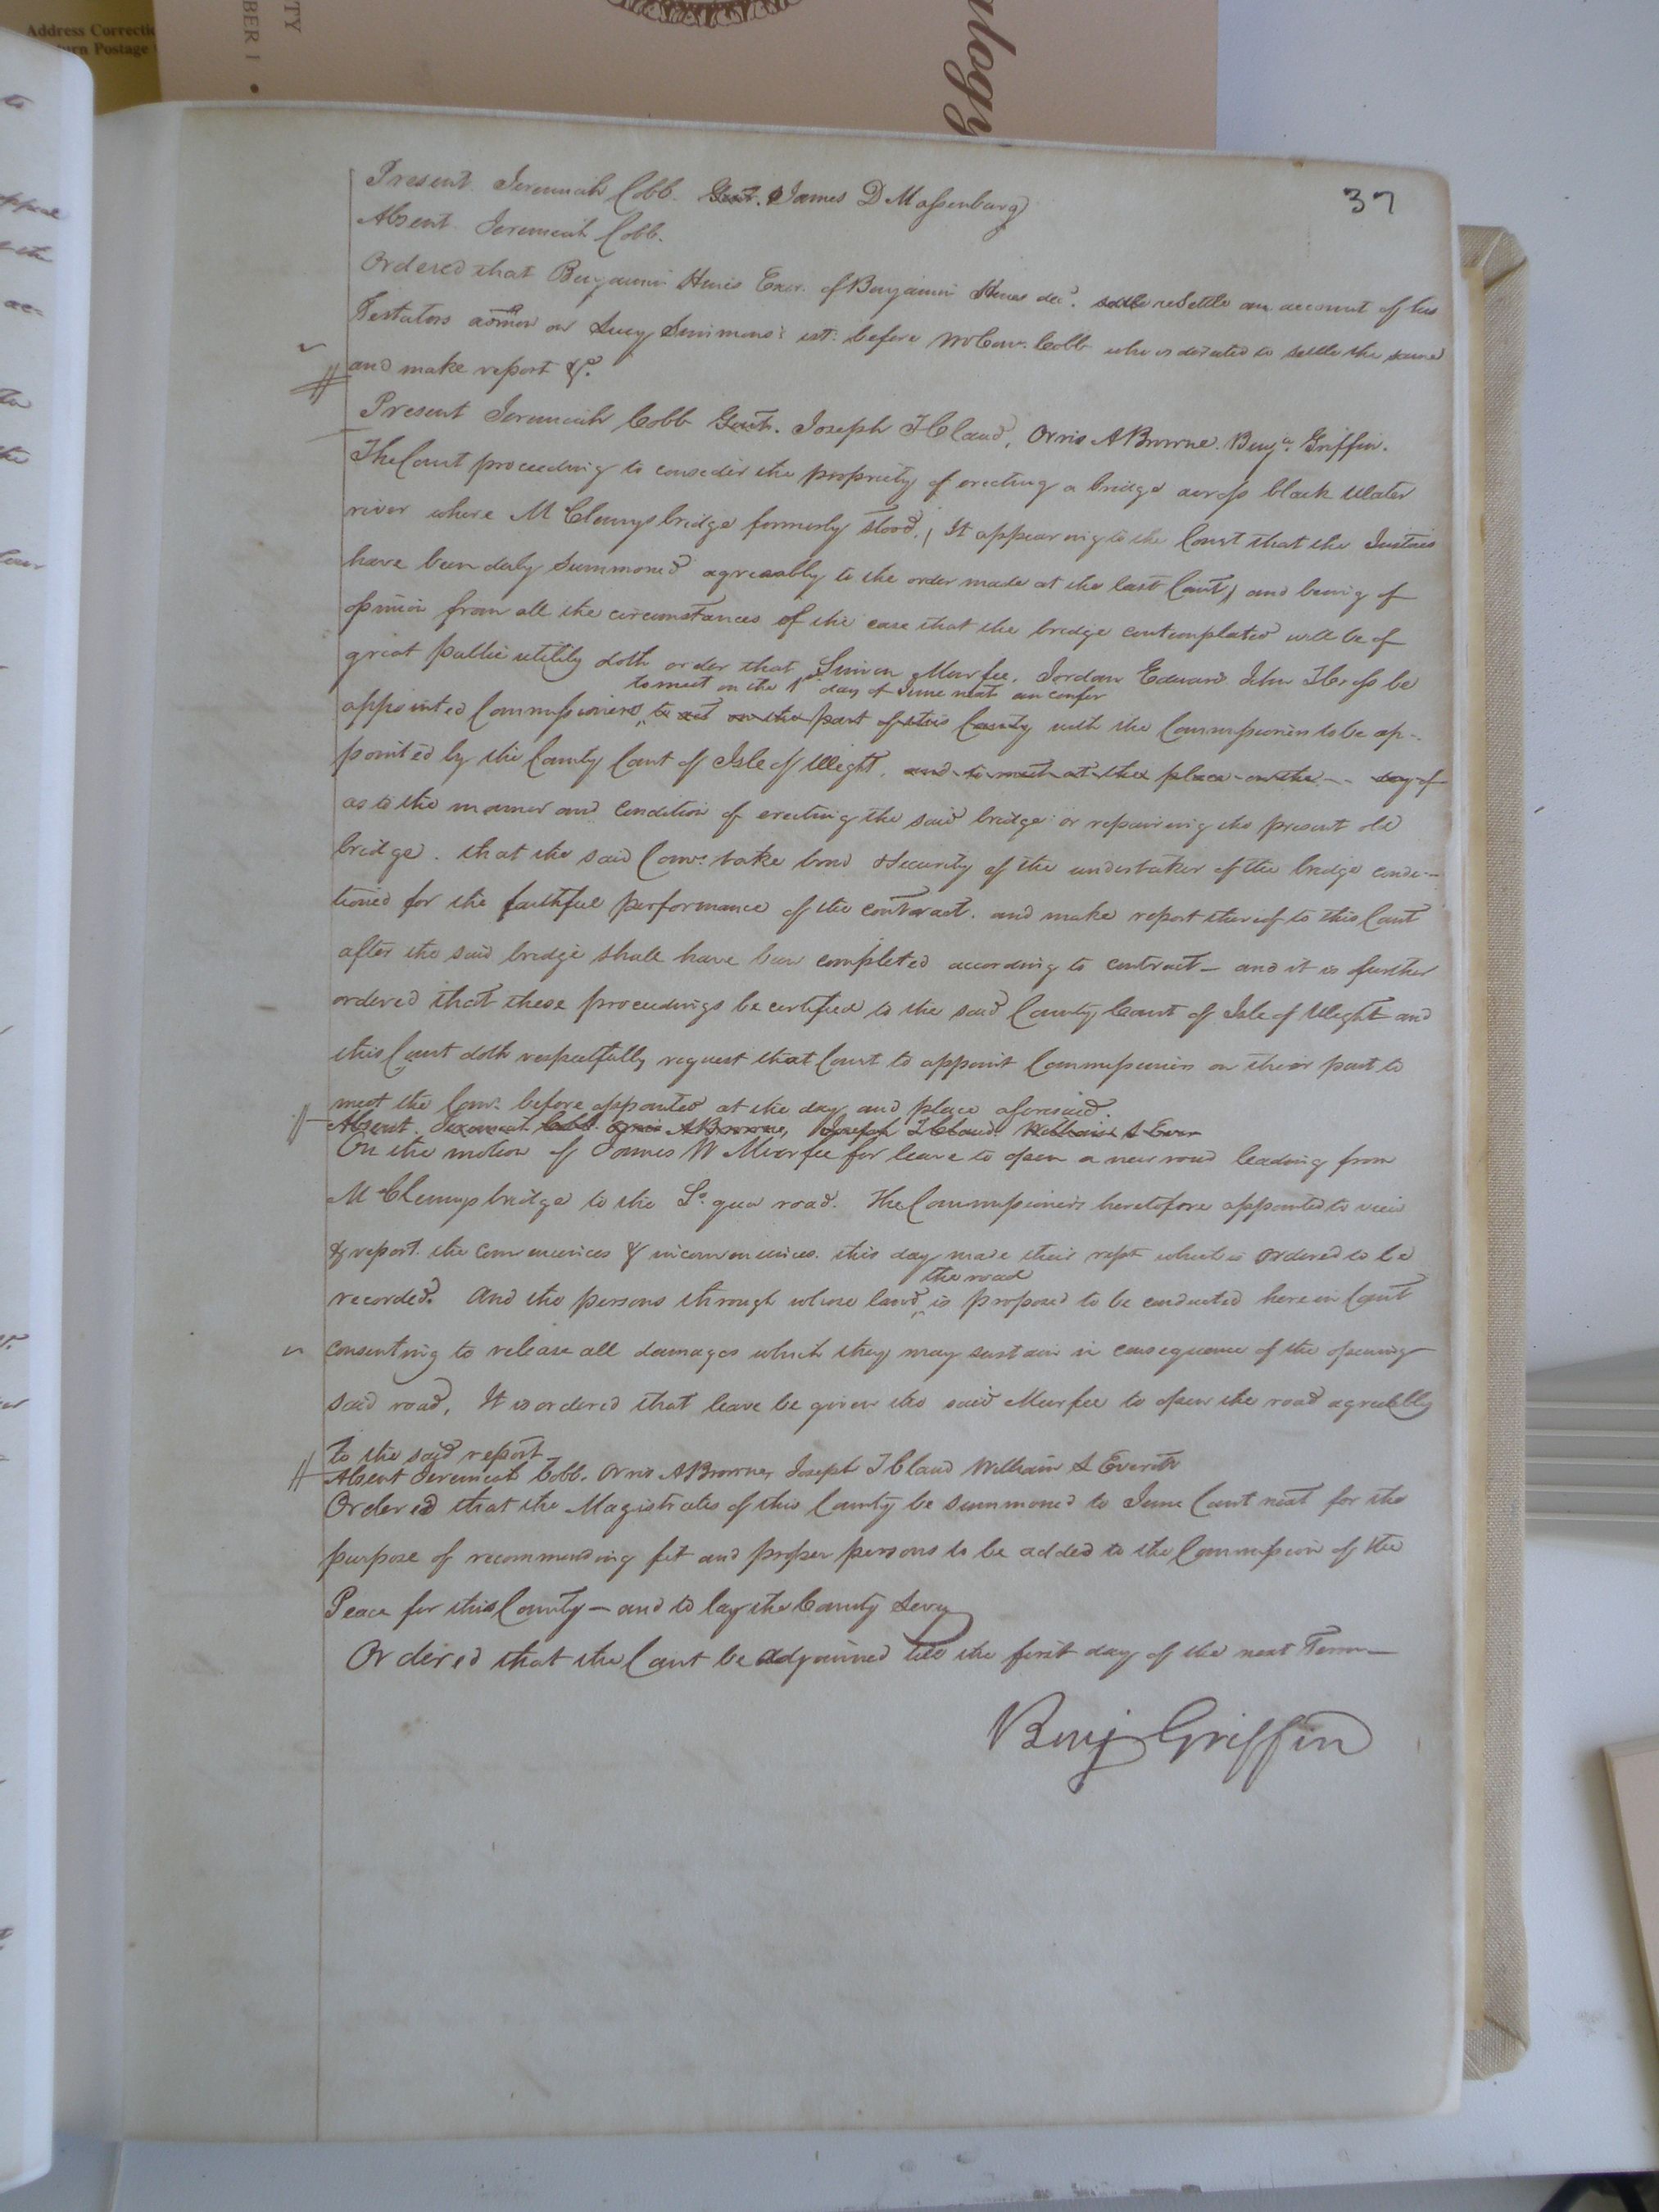 Address Correctio
urn Postage
TY
BER 1 •
alogy
37
Present Jeremiah Cobb. Gent. James D Massenburg
Absent Jeremiah Cobb.
Ordered that Benjamin Hines Exor. of Benjamin Hines decd. settle resettle an account of his
Testators admon on Lucy Simmons's est: before Mr Comr. Cobb who is directed to settle the same
and make report &c.
Present Jeremiah Cobb Gent. Joseph T Claud, Orris A Browne. Benja. Griffin.
The Court proceeding to consider the propriety of erecting a bridge across black Water
river where McClenys bridge formerly stood, (It appearing to the Court that the Justices
have been duly summoned agreeably to the order made at the last Court) and being of
opinion from all the circumstances of the case that the bridge contemplated will be of
great public utility doth order that Simon Murfee, Jordan Edwards John
be
to meet on the 1st day of June next an confer
appointed Commissioners to act on the part of this County with the Commissioners to be ap-
pointed by the County Court of Isle of Wight, and to meet at the place on the -- day of
as to the manner and condition of erecting the said bridge or repairing the present old
bridge. that the said Comrs. take bond & security of the undertaker of the bridge condi-
tioned for the faithful performance of the contract. and make report thereof to this Court
after the said bridge shall have been completed according to contract — and it is further
ordered that these proceedings be certified to the said County Court of Isle of Wight and
this Court doth respectfully request that Court to appoint Commissioners on their part to
meet the Comrs. before appointed at the day and place aforesaid.
Absent. Jeremiah Cobb. Orris A Browne, Joseph T Claud. William Ever
On the motion of James W Murfee for leave to open a new road leading from
McClenys bridge to the So. quay road. The Commissioners heretofore appointed to view
& report the conveniences & inconveniences. this day made their rept which is ordered to be
the road
recorded. And the persons through whose land is proposed to be conducted here in Court
consenting to release all damages which they may sustain in consequence of the opening
said road, It is ordered that leave be given the said Murfee to open the road agreeably
to the said report
Absent Jeremiah Cobb. Orris A Browne, Joseph T Claud William Everett
Ordered that the Magistrates of this County be summoned to June Court next for the
purpose of recommending fit and proper persons to be added to the Commission of the
Peace for this County — and to lay the County Levy
Ordered that the Court be adjourned till the first day of the next Term —
Benj Griffin